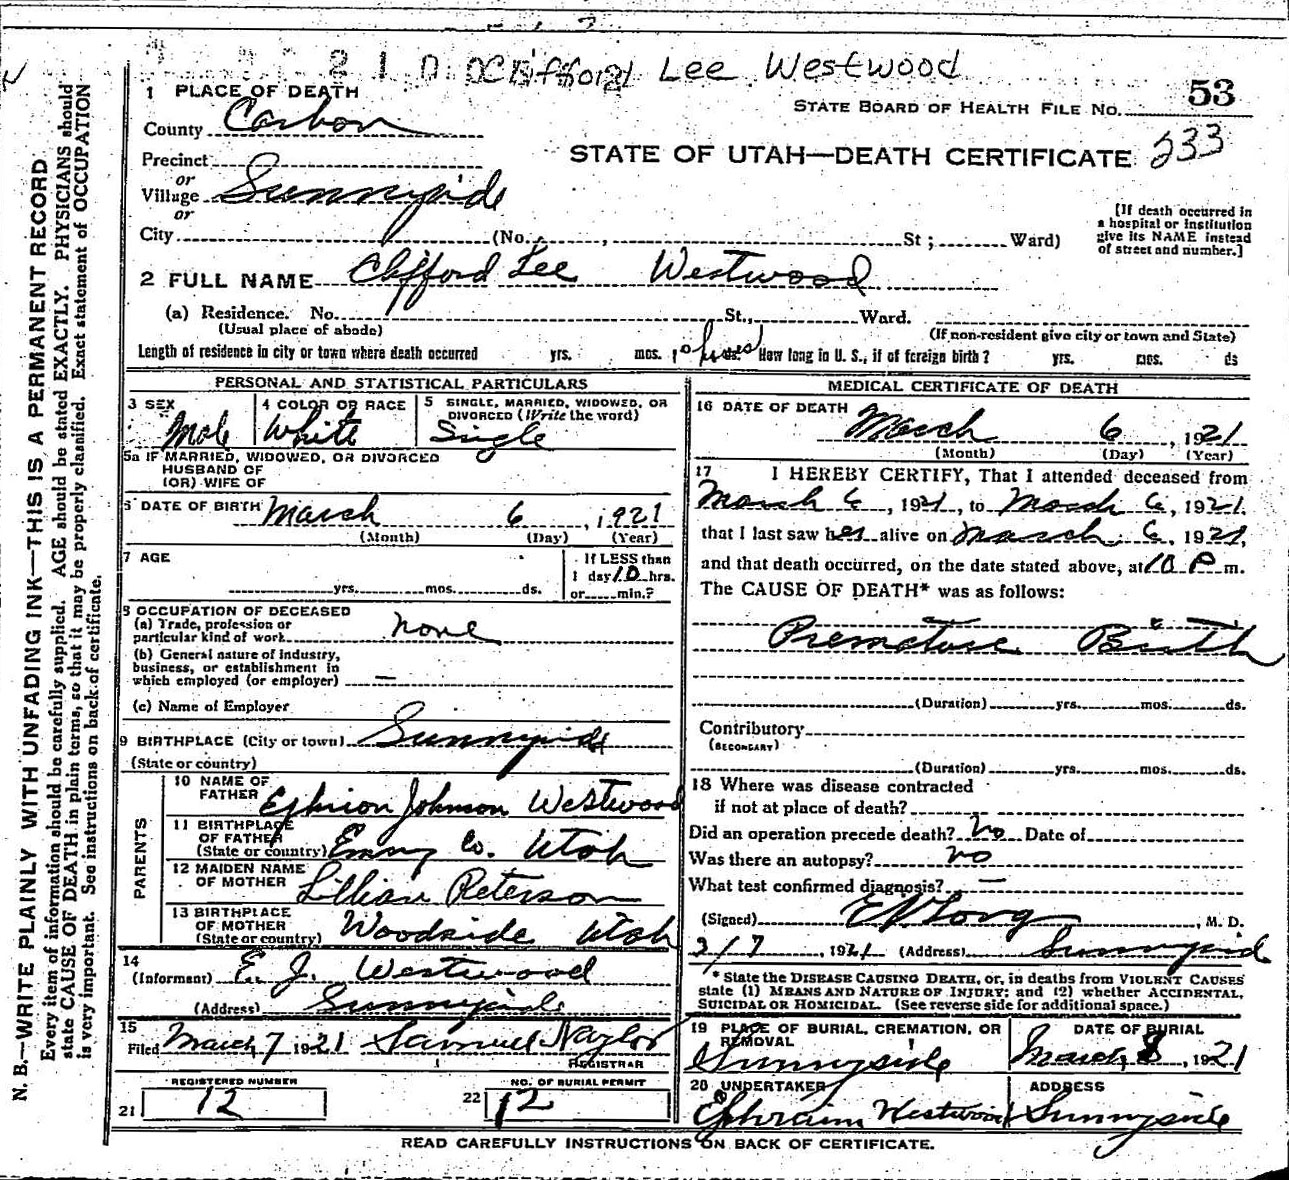 Clifford Lee Westwood
1 PLACE OF DEATH
STATE BOARD OF HEALTH FILE No. 53
County Carbon
STATE OF UTAH—DEATH CERTIFICATE 233
Precinct
or
Village Sunnyside
or
City (No. , St ; Ward)
[If death occurred in
a hospital or institution
give its NAME instead
of street and number.]
2 FULL NAME Clifford Lee Westwood
(a) Residence. No. St., Ward.
(Usual place of abode) (If non-resident give city or town and State)
Length of residence in city or town where death occurred yrs. mos. 10 hours ds. How long in U. S., if of foreign birth? yrs. mos. ds
PERSONAL AND STATISTICAL PARTICULARS
3 SEX Male
4 COLOR OR RACE White
5 SINGLE, MARRIED, WIDOWED, OR
DIVORCED (Write the word)
Single
5a IF MARRIED, WIDOWED, OR DIVORCED
HUSBAND OF
(OR) WIFE OF
6 DATE OF BIRTH March 6, 1921
(Month) (Day) (Year)
7 AGE
yrs. mos. ds.
If LESS than
1 day 10 hrs.
or min.?
8 OCCUPATION OF DECEASED
(a) Trade, profession or
particular kind of work none
(b) General nature of industry,
business, or establishment in
which employed (or employer) —
(c) Name of Employer
9 BIRTHPLACE (City or town) Sunnyside
(State or country)
PARENTS
10 NAME OF
FATHER Ephriom Johnson Westwood
11 BIRTHPLACE
OF FATHER
(State or country) Emery Co. Utah
12 MAIDEN NAME
OF MOTHER Lillian Peterson
13 BIRTHPLACE
OF MOTHER
(State or country) Woodside Utah
14
(Informant) E. J. Westwood
(Address) Sunnyside
15
Filed March 7 1921 Samuel Naylor
REGISTRAR
REGISTERED NUMBER
21 12
NO. OF BURIAL PERMIT
22 12
MEDICAL CERTIFICATE OF DEATH
16 DATE OF DEATH March 6, 1921
(Month) (Day) (Year)
17 I HEREBY CERTIFY, That I attended deceased from
March 6, 1921, to March 6, 1921.
that I last saw her alive on March 6, 1921,
and that death occurred, on the date stated above, at 10 P m.
The CAUSE OF DEATH* was as follows:
Premature Birth
(Duration) yrs. mos. ds.
Contributory
(SECONDARY)
(Duration) yrs. mos. ds.
18 Where was disease contracted
if not at place of death?
Did an operation precede death? No Date of
Was there an autopsy? no
What test confirmed diagnosis? —
(Signed) , M. D.
3/7, 1921 (Address) Sunnyside
* State the DISEASE CAUSING DEATH, or, in deaths from VIOLENT CAUSES
state (1) MEANS AND NATURE OF INJURY; and (2) whether ACCIDENTAL,
SUICIDAL OR HOMICIDAL. (See reverse side for additional space.)
19 PLACE OF BURIAL, CREMATION, OR
REMOVAL
Sunnyside
DATE OF BURIAL
March 8, 1921
20 UNDERTAKER
Ephraim Westwood
ADDRESS
Sunnyside
READ CAREFULLY INSTRUCTIONS ON BACK OF CERTIFICATE.
N. B.—WRITE PLAINLY WITH UNFADING INK—THIS IS A PERMANENT RECORD
Every item of information should be carefully supplied. AGE should be stated EXACTLY. PHYSICIANS should
state CAUSE OF DEATH in plain terms, so that it may be properly classified. Exact statement of OCCUPATION
is very important. See instructions on back of certificate.